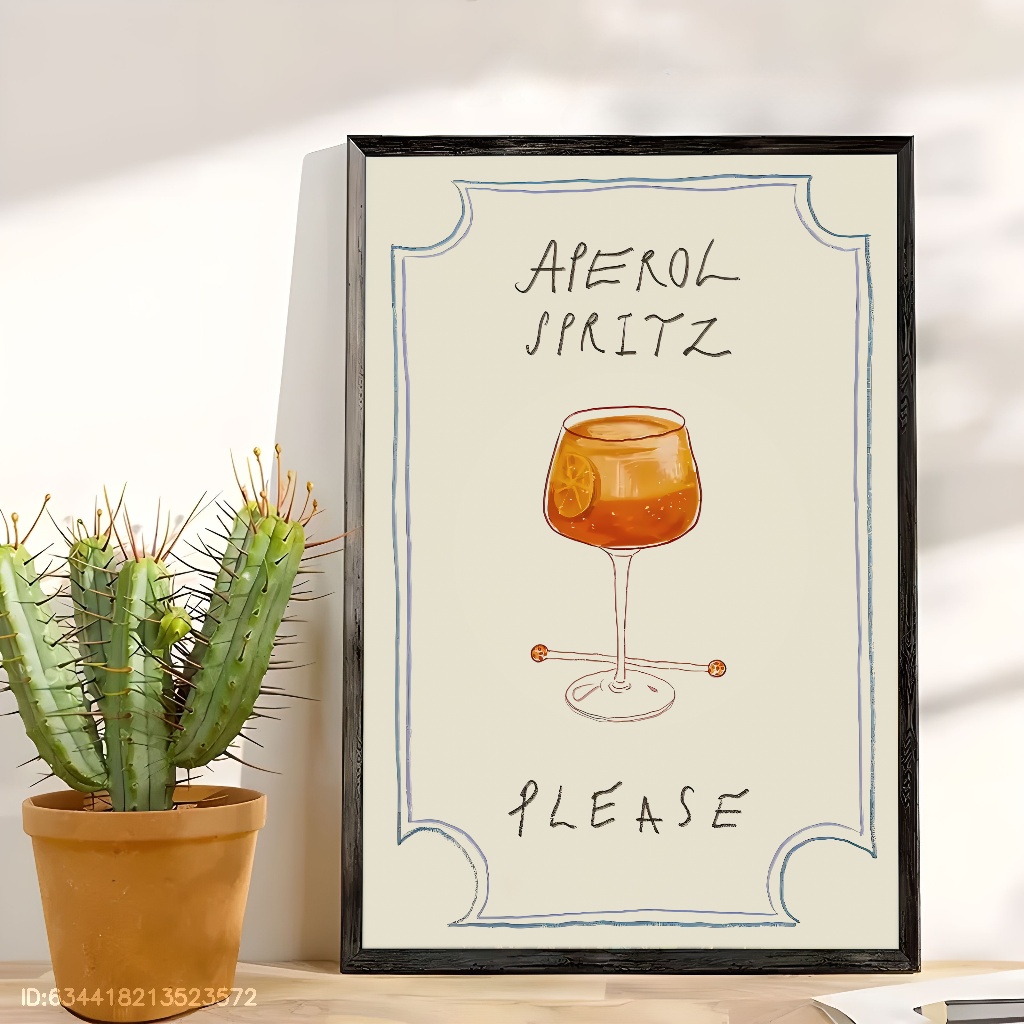 APEROL
SPRITZ
PLEASE
ID:634418213523572